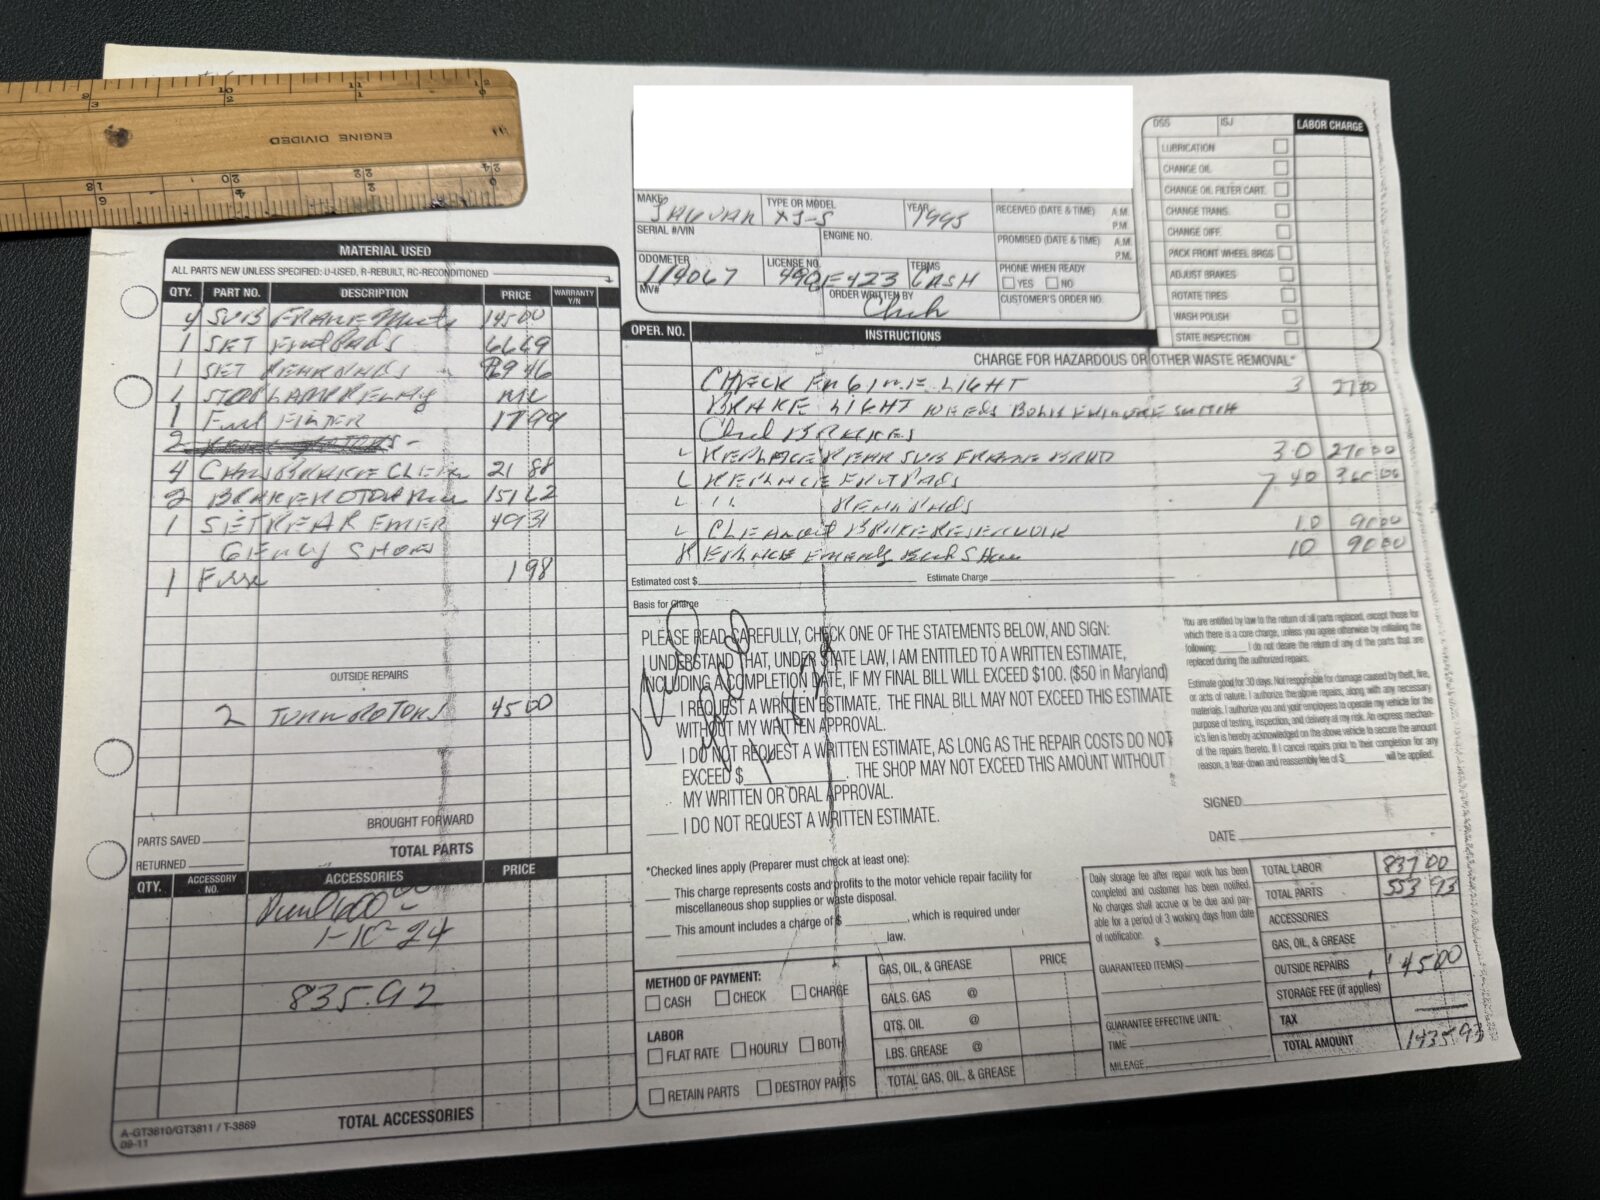 ENGINE DIVIDED
DSS ISJ LABOR CHARGE
LUBRICATION
CHANGE OIL
CHANGE OIL FILTER CART.
CHANGE TRANS.
CHANGE DIFF.
PACK FRONT WHEEL BRGS
ADJUST BRAKES
ROTATE TIRES
WASH POLISH
STATE INSPECTION
MAKE JAGUAR TYPE OR MODEL XJ-S YEAR 1995 RECEIVED (DATE & TIME) A.M. P.M.
SERIAL #/VIN ENGINE NO. PROMISED (DATE & TIME) A.M. P.M.
ODOMETER 119067 LICENSE NO. TERMS CASH PHONE WHEN READY YES NO
MV# ORDER WRITTEN BY Chuck CUSTOMER'S ORDER NO.
MATERIAL USED
ALL PARTS NEW UNLESS SPECIFIED: U-USED, R-REBUILT, RC-RECONDITIONED
QTY. PART NO. DESCRIPTION PRICE WARRANTY Y/N
4 SUB FRAME Mounts 145 00
1 SET Frnt Pads 66 69
1 SET REAR PADS 46
1 STOP LAMP RELAY NC
1 Fuel FILTER 17 99
2
4 CANS BRAKE CLEAN 21 88
2 BRAKE ROTOR 151 62
1 SET REAR EMER 49 31
GENCY SHOES
1 Fuse 1 98
OUTSIDE REPAIRS
2 TURN ROTORS 45 00
BROUGHT FORWARD
PARTS SAVED
TOTAL PARTS
RETURNED
QTY. ACCESSORY NO. ACCESSORIES PRICE
600 00
1-10-24
835.92
TOTAL ACCESSORIES
A-GT3810/GT3811 / T-3869
09-11
OPER. NO. INSTRUCTIONS
CHARGE FOR HAZARDOUS OR OTHER WASTE REMOVAL*
CHECK ENGINE LIGHT 3 27 00
BRAKE LIGHT NEEDS SWITCH
Check BRAKES
REPLACE REAR SUB FRAME 30 270 00
REPLACE FRNT PADS 40 360 00
" REAR PADS
CLEAN out BRAKE RESERVOIR 10 90 00
REPLACE Emergency Shoes 10 90 00
Estimated cost $ Estimate Charge
Basis for Charge
PLEASE READ CAREFULLY, CHECK ONE OF THE STATEMENTS BELOW, AND SIGN:
I UNDERSTAND THAT, UNDER STATE LAW, I AM ENTITLED TO A WRITTEN ESTIMATE,
INCLUDING A COMPLETION DATE, IF MY FINAL BILL WILL EXCEED $100. ($50 in Maryland)
I REQUEST A WRITTEN ESTIMATE. THE FINAL BILL MAY NOT EXCEED THIS ESTIMATE
WITHOUT MY WRITTEN APPROVAL.
I DO NOT REQUEST A WRITTEN ESTIMATE, AS LONG AS THE REPAIR COSTS DO NOT
EXCEED $ . THE SHOP MAY NOT EXCEED THIS AMOUNT WITHOUT
MY WRITTEN OR ORAL APPROVAL.
I DO NOT REQUEST A WRITTEN ESTIMATE.
You are entitled by law to the return of all parts replaced, except those for
which there is a core charge, unless you agree otherwise by initialing the
following: I do not desire the return of any of the parts that are
replaced during the authorized repairs.
Estimate good for 30 days. Not responsible for damage caused by theft, fire,
or acts of nature. I authorize the above repairs, along with any necessary
materials. I authorize you and your employees to operate my vehicle for the
purpose of testing, inspection, and delivery at my risk. An express mechan-
ic's lien is hereby acknowledged on the above vehicle to secure the amount
of the repairs thereto. If I cancel repairs prior to their completion for any
reason, a tear-down and reassembly fee of $ will be applied.
SIGNED
DATE
*Checked lines apply (Preparer must check at least one):
This charge represents costs and profits to the motor vehicle repair facility for
miscellaneous shop supplies or waste disposal.
This amount includes a charge of $ , which is required under
law.
METHOD OF PAYMENT:
CASH CHECK CHARGE
LABOR
FLAT RATE HOURLY BOTH
RETAIN PARTS DESTROY PARTS
GAS, OIL, & GREASE PRICE
GALS. GAS @
QTS. OIL @
LBS. GREASE @
TOTAL GAS, OIL, & GREASE
Daily storage fee after repair work has been
completed and customer has been notified.
No charges shall accrue or be due and pay-
able for a period of 3 working days from date
of notification. $
GUARANTEED ITEM(S)
GUARANTEE EFFECTIVE UNTIL:
TIME
MILEAGE
TOTAL LABOR 837 00
TOTAL PARTS 553 93
ACCESSORIES
GAS, OIL, & GREASE
OUTSIDE REPAIRS 45 00
STORAGE FEE (if applies)
TAX
TOTAL AMOUNT 1435 93